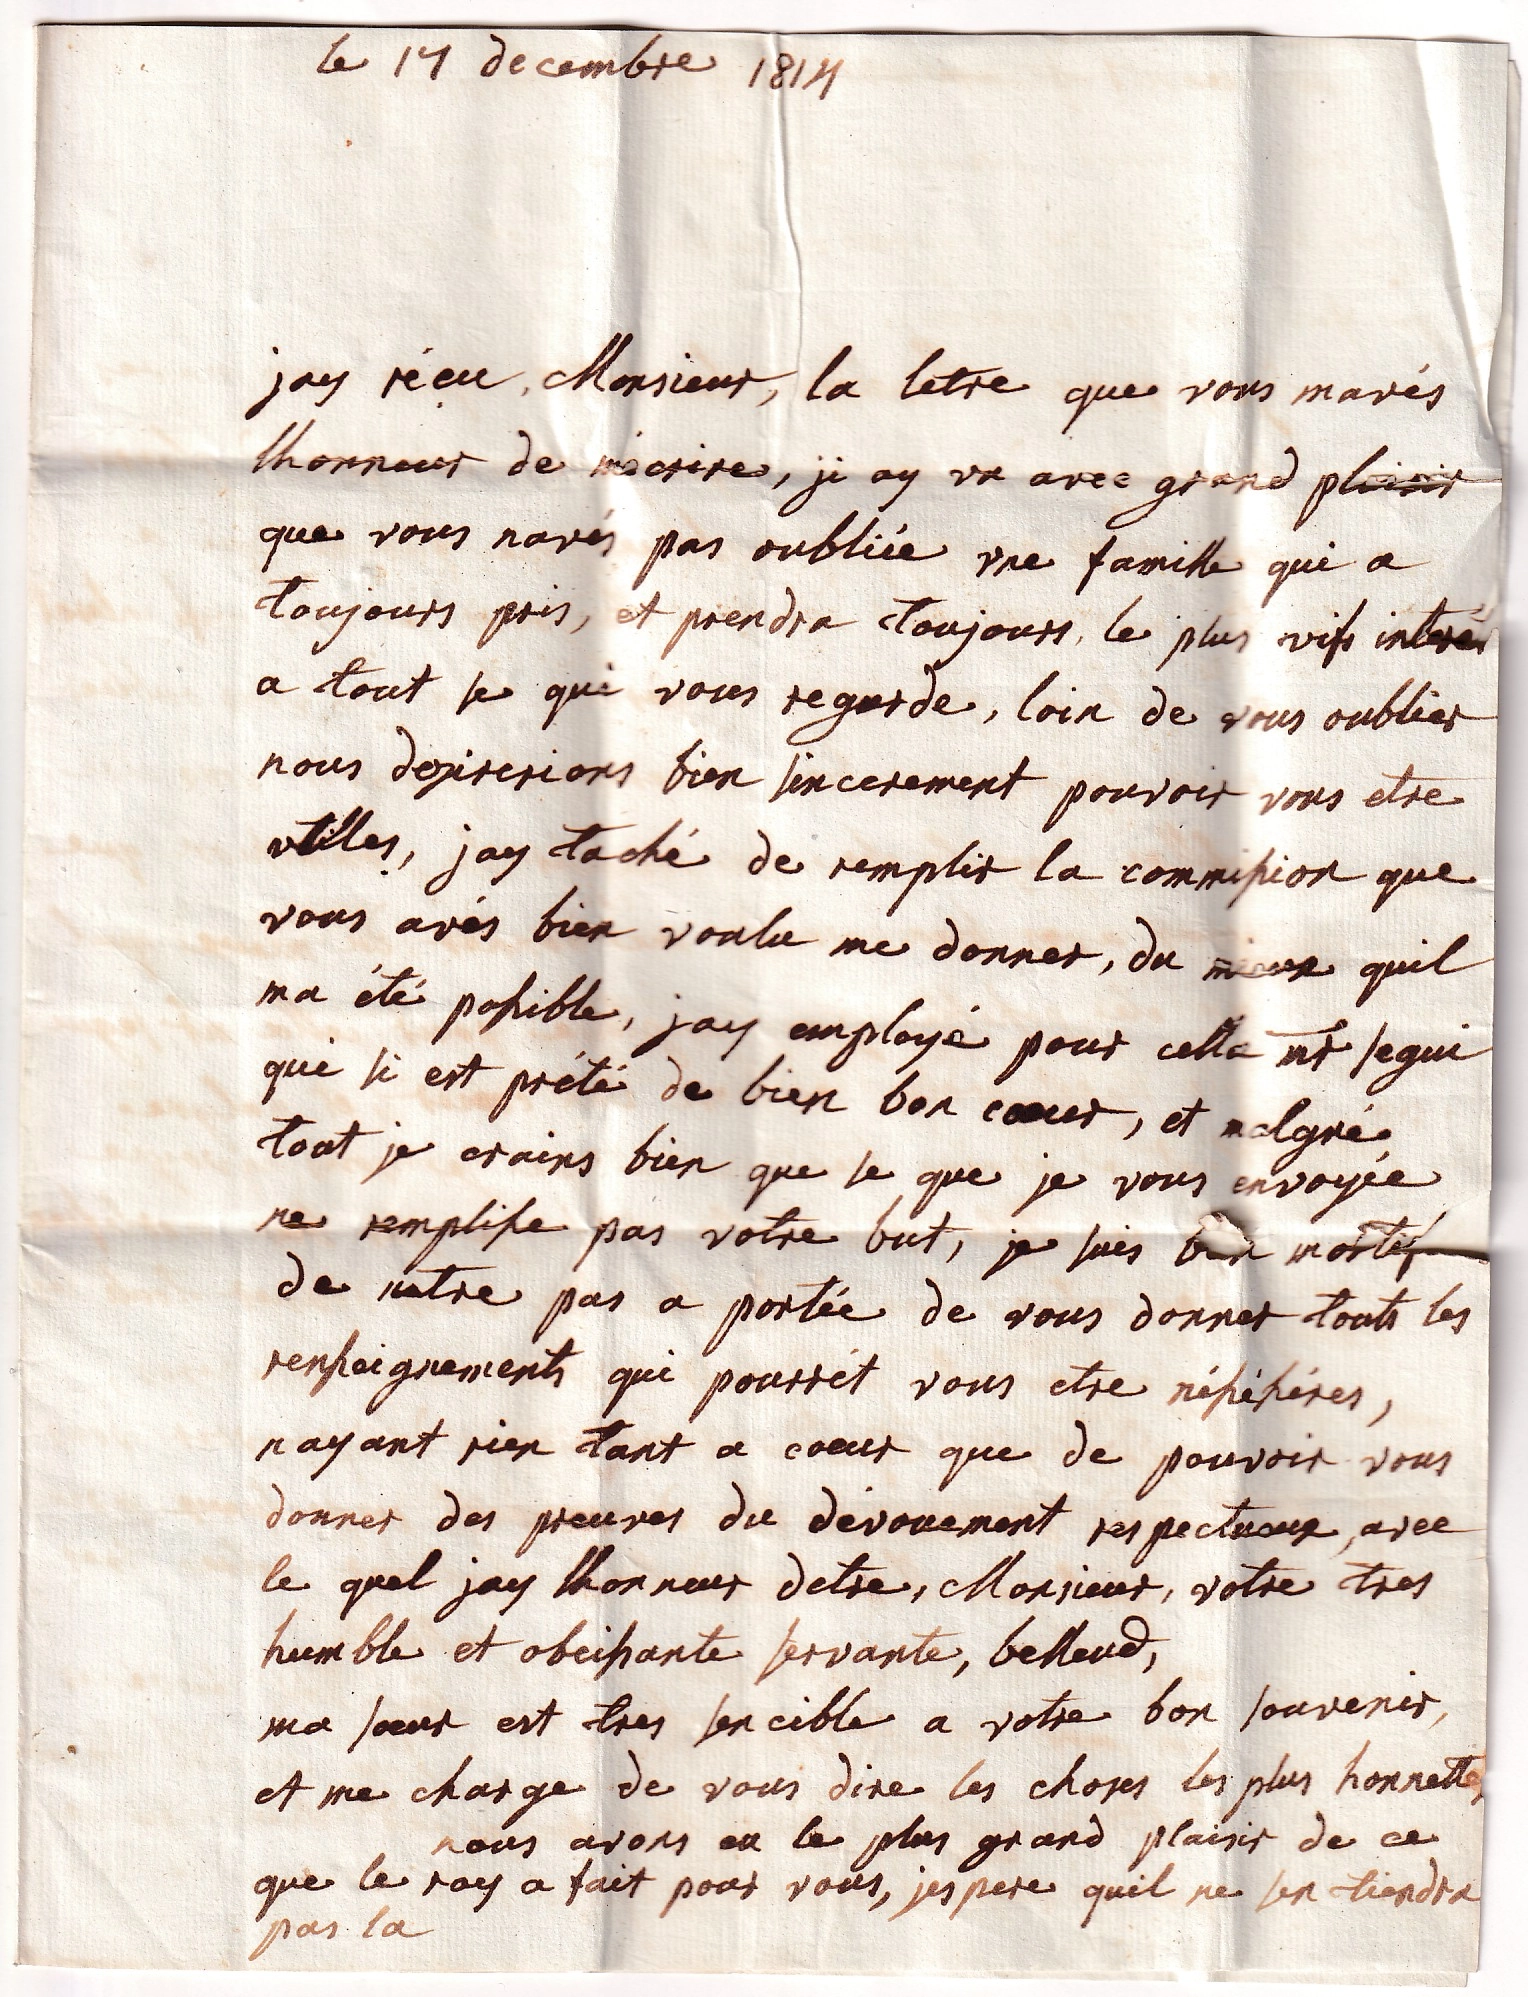 le 17 decembre 1814
jay réçu, Monsieur, la letre que vous mavés
lhonneur de mécrire, ji ay vu avec grand plaisir
que vous navés pas oubliée une famille qui a
toujours pris, et prendra toujours, le plus vifs interés
a tout se qui vous regarde, loin de vous oublier
nous desirerions bien sincerement pouvoir vous etre
utilles, jay taché de remplir la commission que
vous avés bien voulu me donner, du mieux quil
ma été possible, jay employé pour cella mr segui
qui si est prété de bien bon cœur, et malgré
tout je crains bien que se que je vous envoyée
ne remplisse pas votre but, je suis bien mortif
de netre pas a portée de vous donner touts les
renseignements qui pourrét vous etre nésésséres,
nayant rien tant a coeur que de pouvoir vous
donner des preuves du dévouement respectueux, avec
le quel jay lhonneur detre, Monsieur, votre tres
humble et obeissante servante, belleud,
ma sœur est tres sencible a votre bon souvenir,
et me charge de vous dire les choses les plus honnettes
nous avons eu le plus grand plaisir de ce
que le roy a fait pour vous, jespere quil ne sen tiendra
pas la